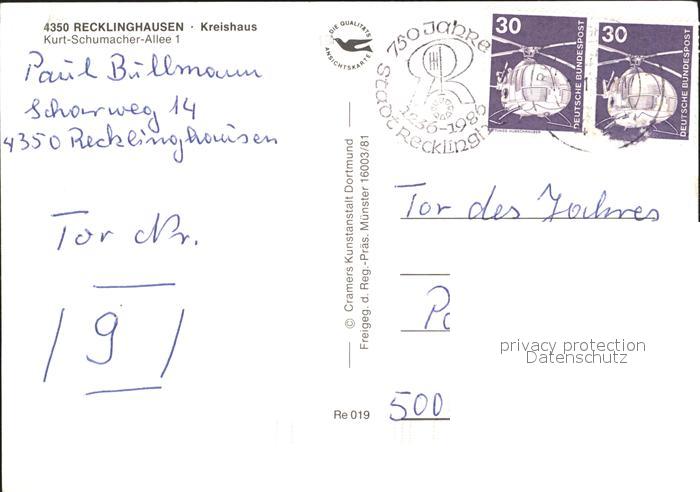 4350 RECKLINGHAUSEN · Kreishaus
Kurt-Schumacher-Allee 1
Paul Bullmann
Scharweg 14
4350 Recklinghausen
Tor Nr.
9
DIE QUALITÄTS
ANSICHTSKARTE
© Cramers Kunstanstalt Dortmund
Freigeg. d. Reg.-Präs. Münster 16003/81
Re 019
750 Jahre
Stadt Recklingh
1236-1986
30
DEUTSCHE BUNDESPOST
30
DEUTSCHE BUNDESPOST
Tor des Jahres
Po
privacy protection
Datenschutz
500